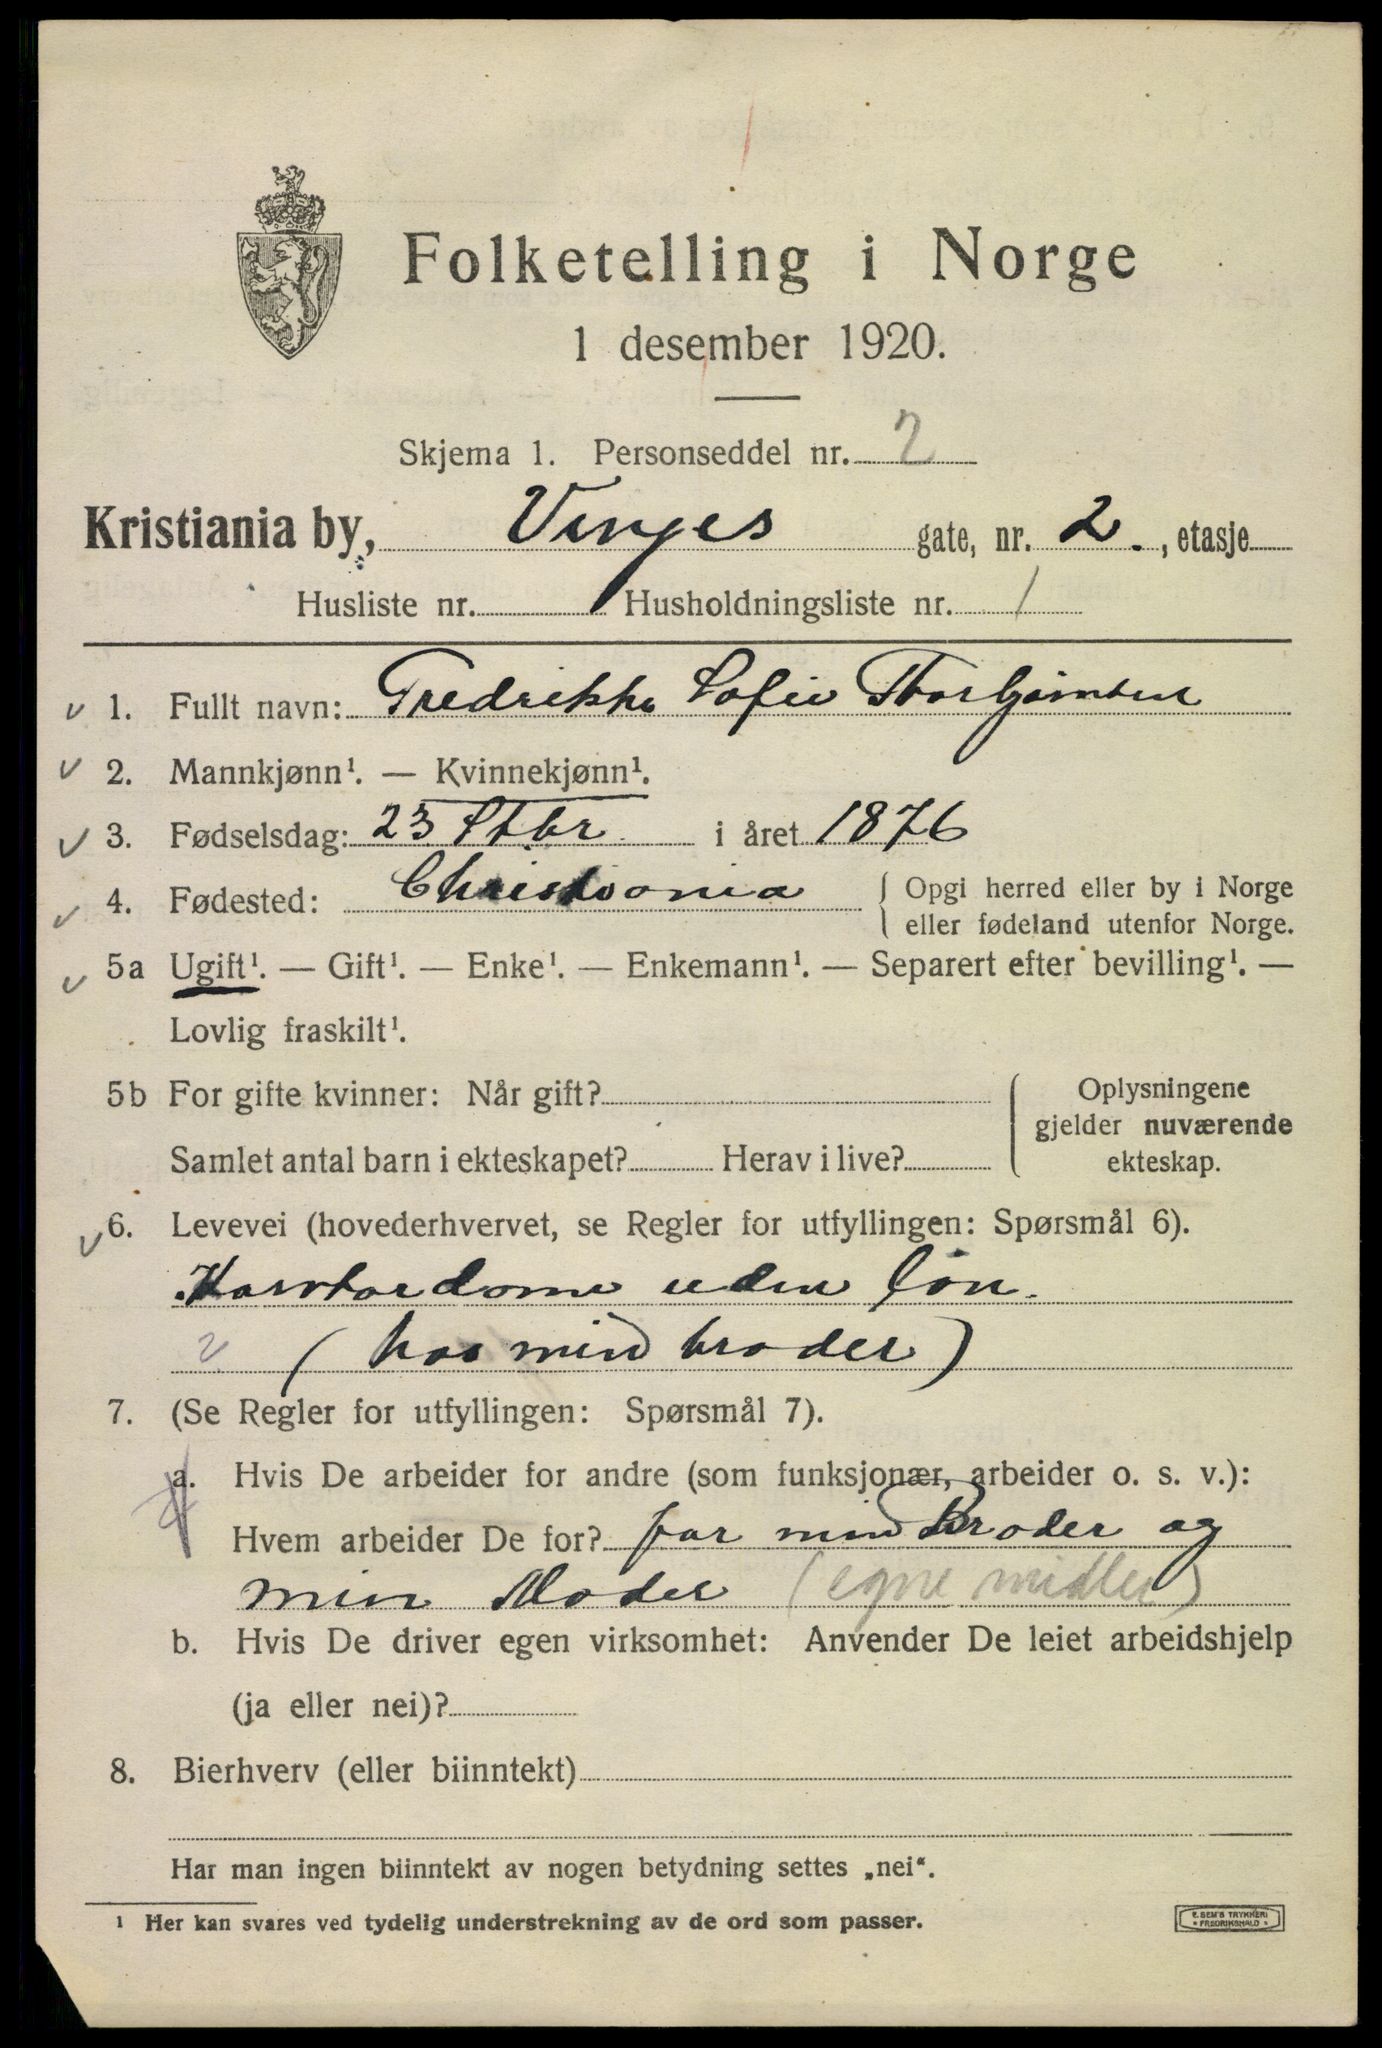 Folketelling i Norge
1 desember 1920.
Skjema 1. Personseddel nr. 2
Kristiania by, Vinjes gate, nr. 2. , etasje
Husliste nr. Husholdningsliste nr. 1
1. Fullt navn: Fredrikke Sofie
2. Mannkjønn¹. — Kvinnekjønn¹.
3. Fødselsdag: 23 i året 1876
4. Fødested: Christiania { Opgi herred eller by i Norge
eller fødeland utenfor Norge.
5a Ugift¹. — Gift¹. — Enke¹. — Enkemann¹. — Separert efter bevilling¹. —
Lovlig fraskilt¹.
5b For gifte kvinner: Når gift?
Samlet antal barn i ekteskapet? Herav i live?
Oplysningene
gjelder nuværende
ekteskap.
6. Levevei (hovederhvervet, se Regler for utfyllingen: Spørsmål 6).
uden løn.
(hos min broder)
7. (Se Regler for utfyllingen: Spørsmål 7).
a. Hvis De arbeider for andre (som funksjonær, arbeider o. s. v.):
Hvem arbeider De for? for min Broder og
min Moder (egne midler)
b. Hvis De driver egen virksomhet: Anvender De leiet arbeidshjelp
(ja eller nei)?
8. Bierhverv (eller biinntekt)
Har man ingen biinntekt av nogen betydning settes „nei“.
¹ Her kan svares ved tydelig understrekning av de ord som passer.
E. SEM'S TRYKKERI
* FREDRIKSHALD *